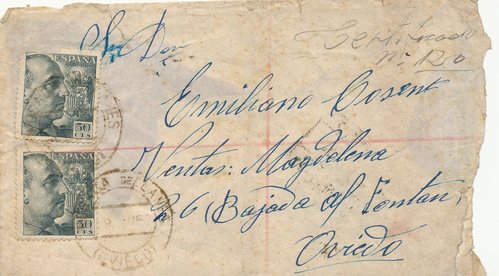 Certificado
Nº 120
Sr Don
Emiliano Cosent
Ventas: Magdalena
26 (Bajada al Fontan)
Oviedo
ESPAÑA
50
CTS
ESPAÑA
50
CTS
(OVIEDO)